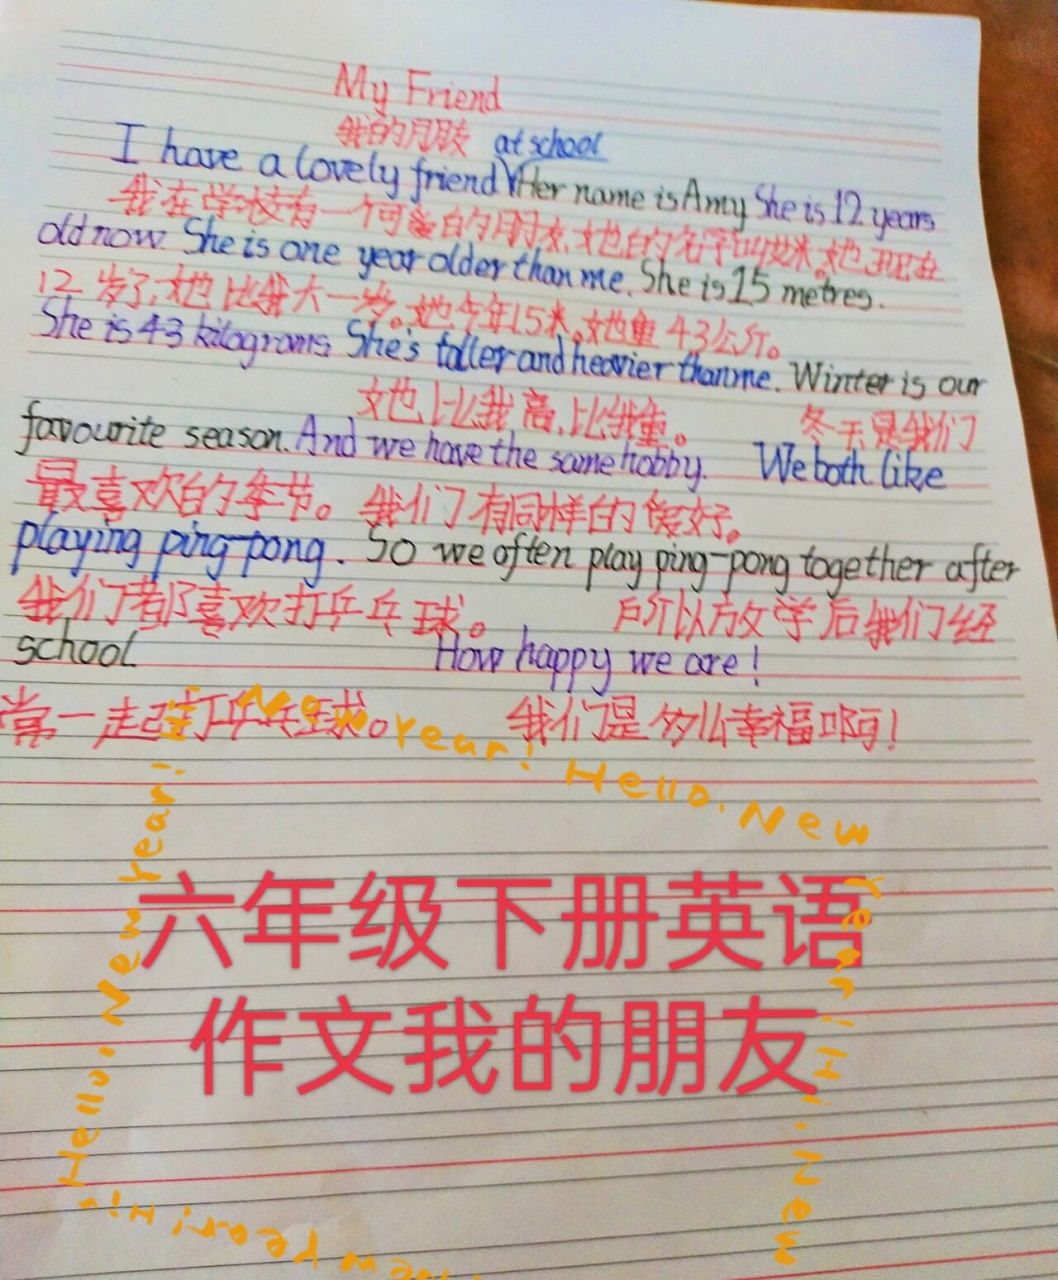 My Friend
我的朋友 at school
I have a lovely friend Her name is Amy She is 12 years
我在学校有一个可爱的朋友,她的名字叫埃米。她现在
old now She is one year older than me. She is 15 metres.
12岁了,她比我大一岁。她今年15米。她重43公斤。
She is 43 kilograms She's taller and heavier than me. Winter is our
她比我高,比我重。 冬天是我们
favourite season. And we have the same hobby. We both like
最喜欢的季节。我们有同样的爱好。
playing ping-pong. So we often play ping-pong together after
我们都喜欢打乒乓球。 所以放学后我们经
school How happy we are!
常一起打乒乓球。 我们是多么幸福啊!
New Year! Hello, New Year! Hi, New
六年级下册英语
作文我的朋友
Hello, New Year!
Hi, New Year! Hi,